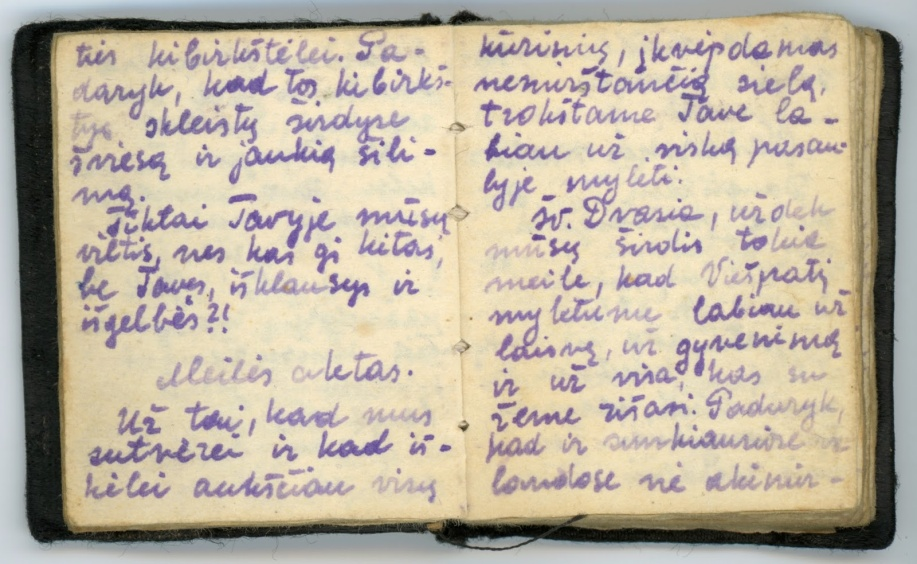 ties kibirkštėlei. Pa-
daryk, kad tos kibirkš-
tys skleistų širdyse
šviesą ir jaukią šili-
mą.
Tiktai Tavyje mūsų
viltis, nes kas gi kitas,
be Tavęs, išklausys ir
išgelbės?!
Meilės aktas.
Už tai, kad mus
sutvėrei ir kad iš-
kėlei aukščiau visų
kūrinių, įkvėpdamas
nemirštančią sielą,
trokštame Tave la-
biau už viską pasau-
lyje mylėti.
Šv. Dvasia, uždek
mūsų širdis tokia
meile, kad Viešpatį
mylėtume labiau už
laisvę, už gyvenimą
ir už visa, kas su
žeme rišasi. Padaryk,
kad ir sunkiausiose va
landose nė akimir-